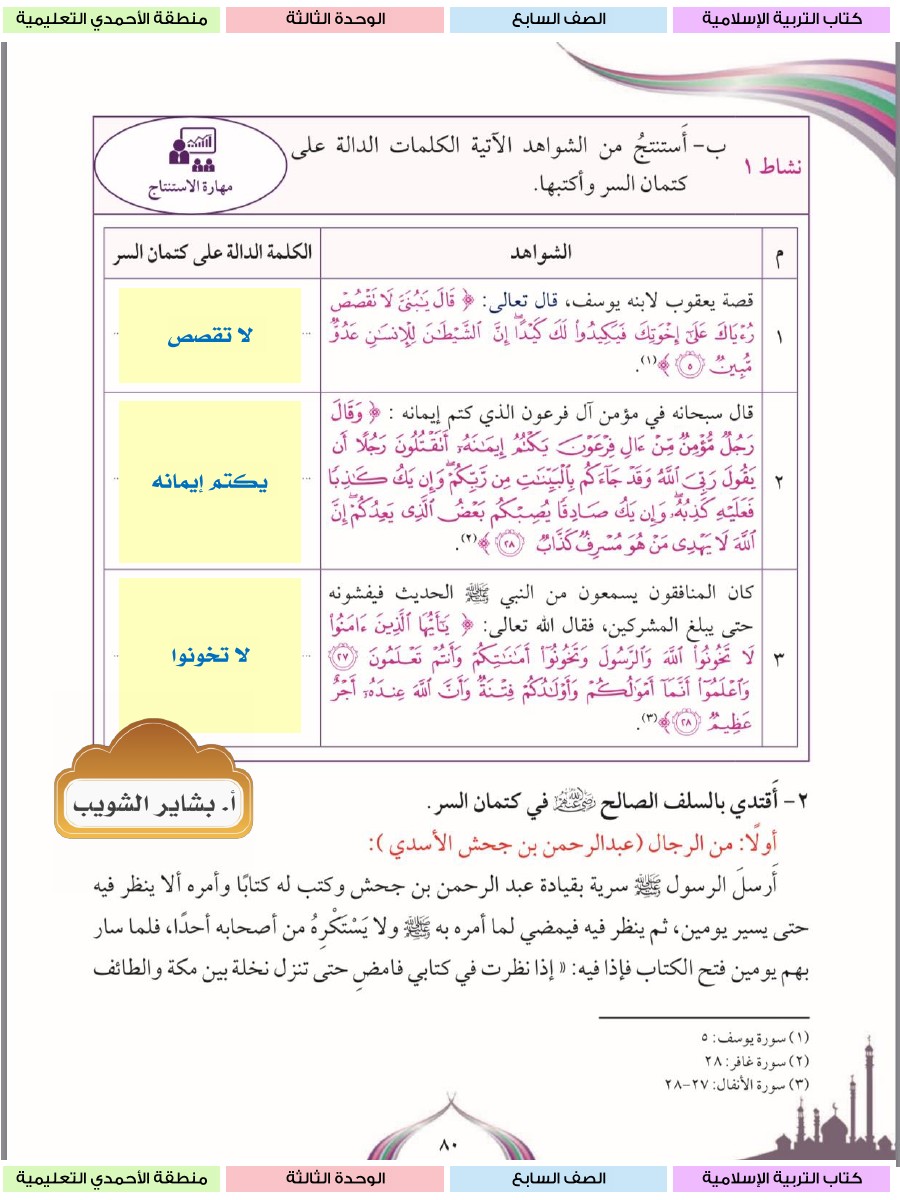 كتاب التربية الإسلامية
الصف السابع
الوحدة الثالثة
منطقة الأحمدي التعليمية
نشاط ١
ب- أَستنتجُ من الشواهد الآتية الكلمات الدالة على
كتمان السر وأكتبها.
مهارة الاستنتاج
م
الشواهد
الكلمة الدالة على كتمان السر
١
قصة يعقوب لابنه يوسف، قال تعالى: ﴿ قَالَ يَٰبُنَيَّ لَا تَقۡصُصۡ
رُءۡيَاكَ عَلَىٰٓ إِخۡوَتِكَ فَيَكِيدُواْ لَكَ كَيۡدًاۖ إِنَّ ٱلشَّيۡطَٰنَ لِلۡإِنسَٰنِ عَدُوّٞ
مُّبِينٞ ٥ ﴾(١).
لا تقصص
٢
قال سبحانه في مؤمن آل فرعون الذي كتم إيمانه : ﴿ وَقَالَ
رَجُلٞ مُّؤۡمِنٞ مِّنۡ ءَالِ فِرۡعَوۡنَ يَكۡتُمُ إِيمَٰنَهُۥٓ أَتَقۡتُلُونَ رَجُلًا أَن
يَقُولَ رَبِّيَ ٱللَّهُ وَقَدۡ جَآءَكُم بِٱلۡبَيِّنَٰتِ مِن رَّبِّكُمۡۖ وَإِن يَكُ كَٰذِبٗا
فَعَلَيۡهِ كَذِبُهُۥۖ وَإِن يَكُ صَادِقٗا يُصِبۡكُم بَعۡضُ ٱلَّذِي يَعِدُكُمۡۖ إِنَّ
ٱللَّهَ لَا يَهۡدِي مَنۡ هُوَ مُسۡرِفٞ كَذَّابٞ ٢٨ ﴾(٢).
يكتم إيمانه
٣
كان المنافقون يسمعون من النبي ﷺ الحديث فيفشونه
حتى يبلغ المشركين، فقال الله تعالى: ﴿ يَٰٓأَيُّهَا ٱلَّذِينَ ءَامَنُواْ
لَا تَخُونُواْ ٱللَّهَ وَٱلرَّسُولَ وَتَخُونُوٓاْ أَمَٰنَٰتِكُمۡ وَأَنتُمۡ تَعۡلَمُونَ ٢٧
وَٱعۡلَمُوٓاْ أَنَّمَآ أَمۡوَٰلُكُمۡ وَأَوۡلَٰدُكُمۡ فِتۡنَةٞ وَأَنَّ ٱللَّهَ عِندَهُۥٓ أَجۡرٌ
عَظِيمٞ ٢٨ ﴾(٣).
لا تخونوا
أ. بشاير الشويب
٢- أَقتدي بالسلف الصالح رضي الله عنهم في كتمان السر.
أولًا: من الرجال (عبدالرحمن بن جحش الأسدي ):
أَرسلَ الرسول ﷺ سرية بقيادة عبد الرحمن بن جحش وكتب له كتابًا وأمره ألا ينظر فيه
حتى يسير يومين، ثم ينظر فيه فيمضي لما أمره به ﷺ ولا يَسْتَكْرِهُ من أصحابه أحدًا، فلما سار
بهم يومين فتح الكتاب فإذا فيه: « إذا نظرت في كتابي فامضِ حتى تنزل نخلة بين مكة والطائف
(١) سورة يوسف: ٥
(٢) سورة غافر: ٢٨
(٣) سورة الأنفال: ٢٧-٢٨
٨٠
كتاب التربية الإسلامية
الصف السابع
الوحدة الثالثة
منطقة الأحمدي التعليمية